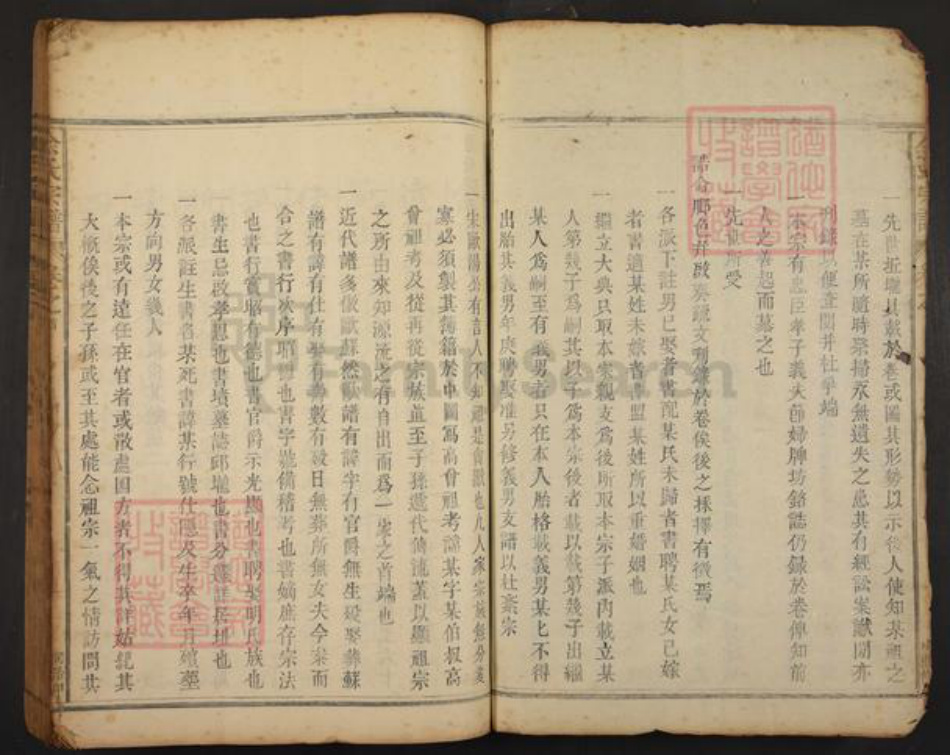 一先世坵壠具載於卷或圖其形勢以示後人使知某祖之
墓在某所隨時祭掃永無遺失之患其有經訟案讞聞亦
刋錄以便查閱并杜爭端
一本宗有忠臣孝子義夫節婦牌坊銘誌仍録於卷俾知前
人之善起而慕之也
一先世所受
誥命
一各派下註男已娶者書配某氏未歸者書聘某氏女已嫁
者書適某姓未嫁者書盟某姓所以重婚姻也
一繼立大典只取本家親支爲後所取本宗子派内載立某
人第幾子爲嗣其以子爲本宗後者載以載第幾子出繼
某人爲嗣至有義男者只在本人胎格載義男某匕不得
出胎其義男年庚聘娶准另修義男支譜以杜紊宗
一宋歐陽公有言人不知
寡必須製其簿籍於中圖寫高曾祖考諱某字某伯叔高
曾祖考及從再從宗族直至子孫遞代傳流蓋以顯祖宗
之所由來知源流之有自出而爲一家之首端也
一近代譜多傚歐蘇然歐譜有諱字有官爵無生歿娶葬蘇
譜有諱有仕有娶有壽數有歿日無葬所無女夫今案而
合之書行次序昭也書字號備稽考也書嫡庶存宗法
也書行實昭有德也書官爵示光顯也書聘娶明氏族也
書生忌啟孝思也書墳墓誌邱壠也書分遷註居址也
一各派註生書名某死書諱某行號仕隱及生卒年月殯塟
方向男女幾人
一本宗或有遠任在官者或散處四方者不得其詳姑記其
大槪俟後之子孫或至其處能念祖宗一氣之情訪問其